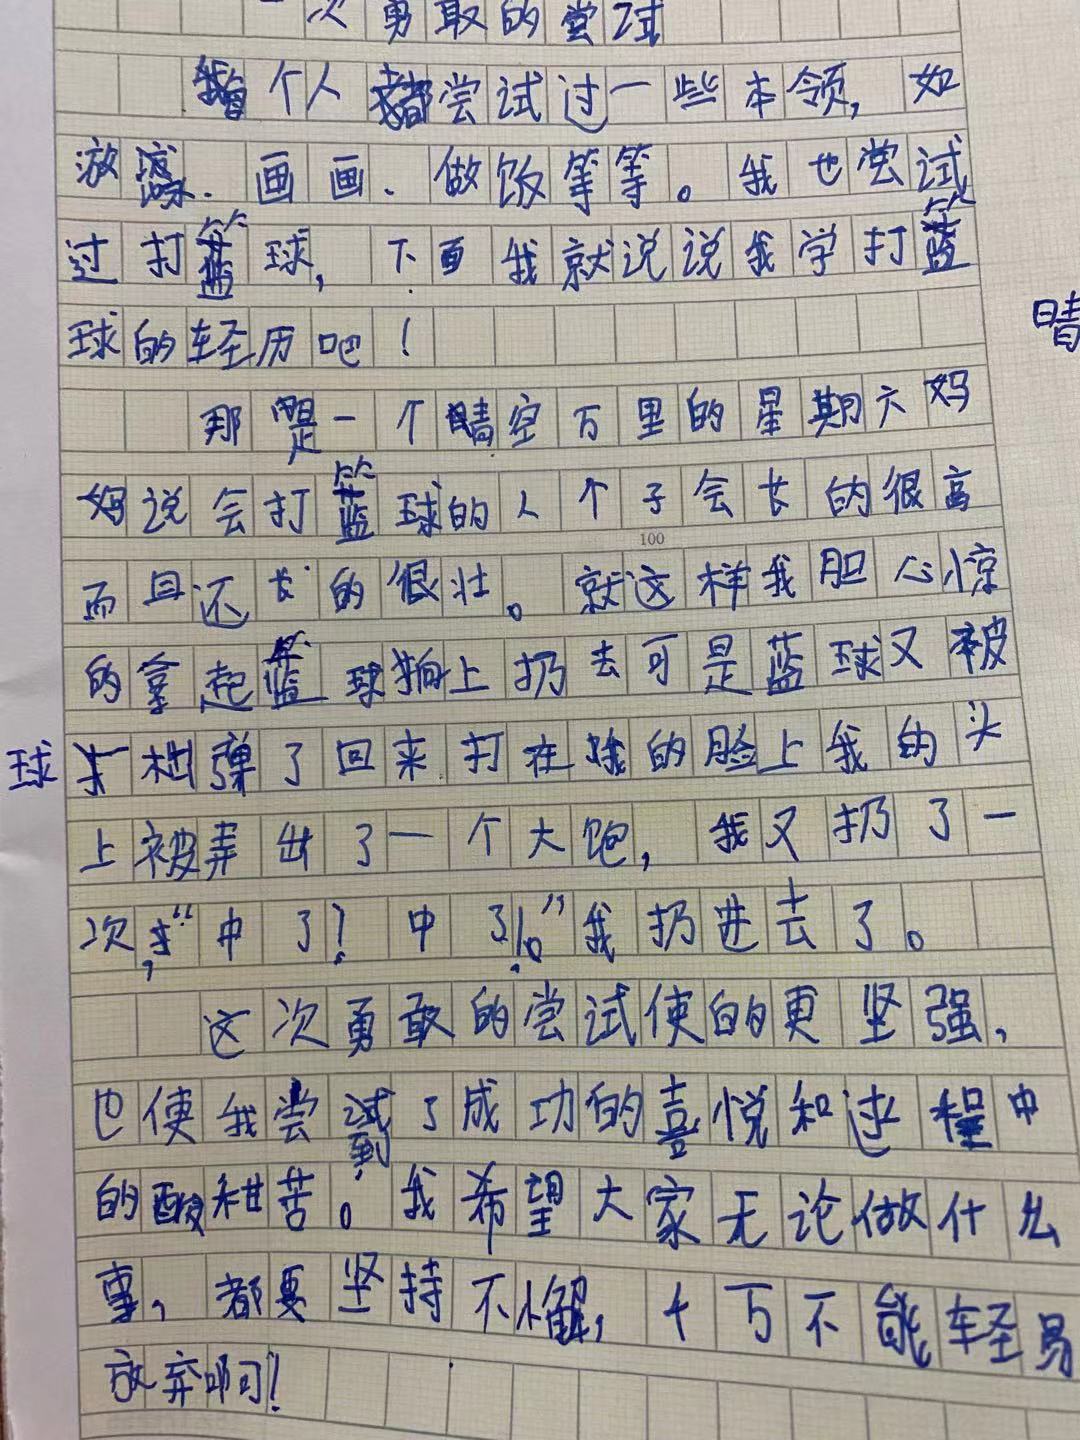 一次勇敢的尝试
每个人都尝试过一些本领，如
游泳、画画、做饭等等。我也尝试
过打篮球，下面我就说说我学打篮
球的轻历吧！
晴
那是一个晴空万里的星期六妈
妈说会打篮球的人个子会长的很高
100
而且还长的很壮。就这样我胆心惊
的拿起篮球拍上扔去可是蓝球又被
球 弹了回来打在我的脸上我的头
上被弄出了一个大饱，我又扔了一
次，“中了！中了！。”我扔进去了。
这次勇敢的尝试使的的更坚强，
也使我尝到了成功的喜悦和过程中
的酸甜苦。我希望大家无论做什么
事，都要坚持不懈，千万不能轻易
放弃啊！